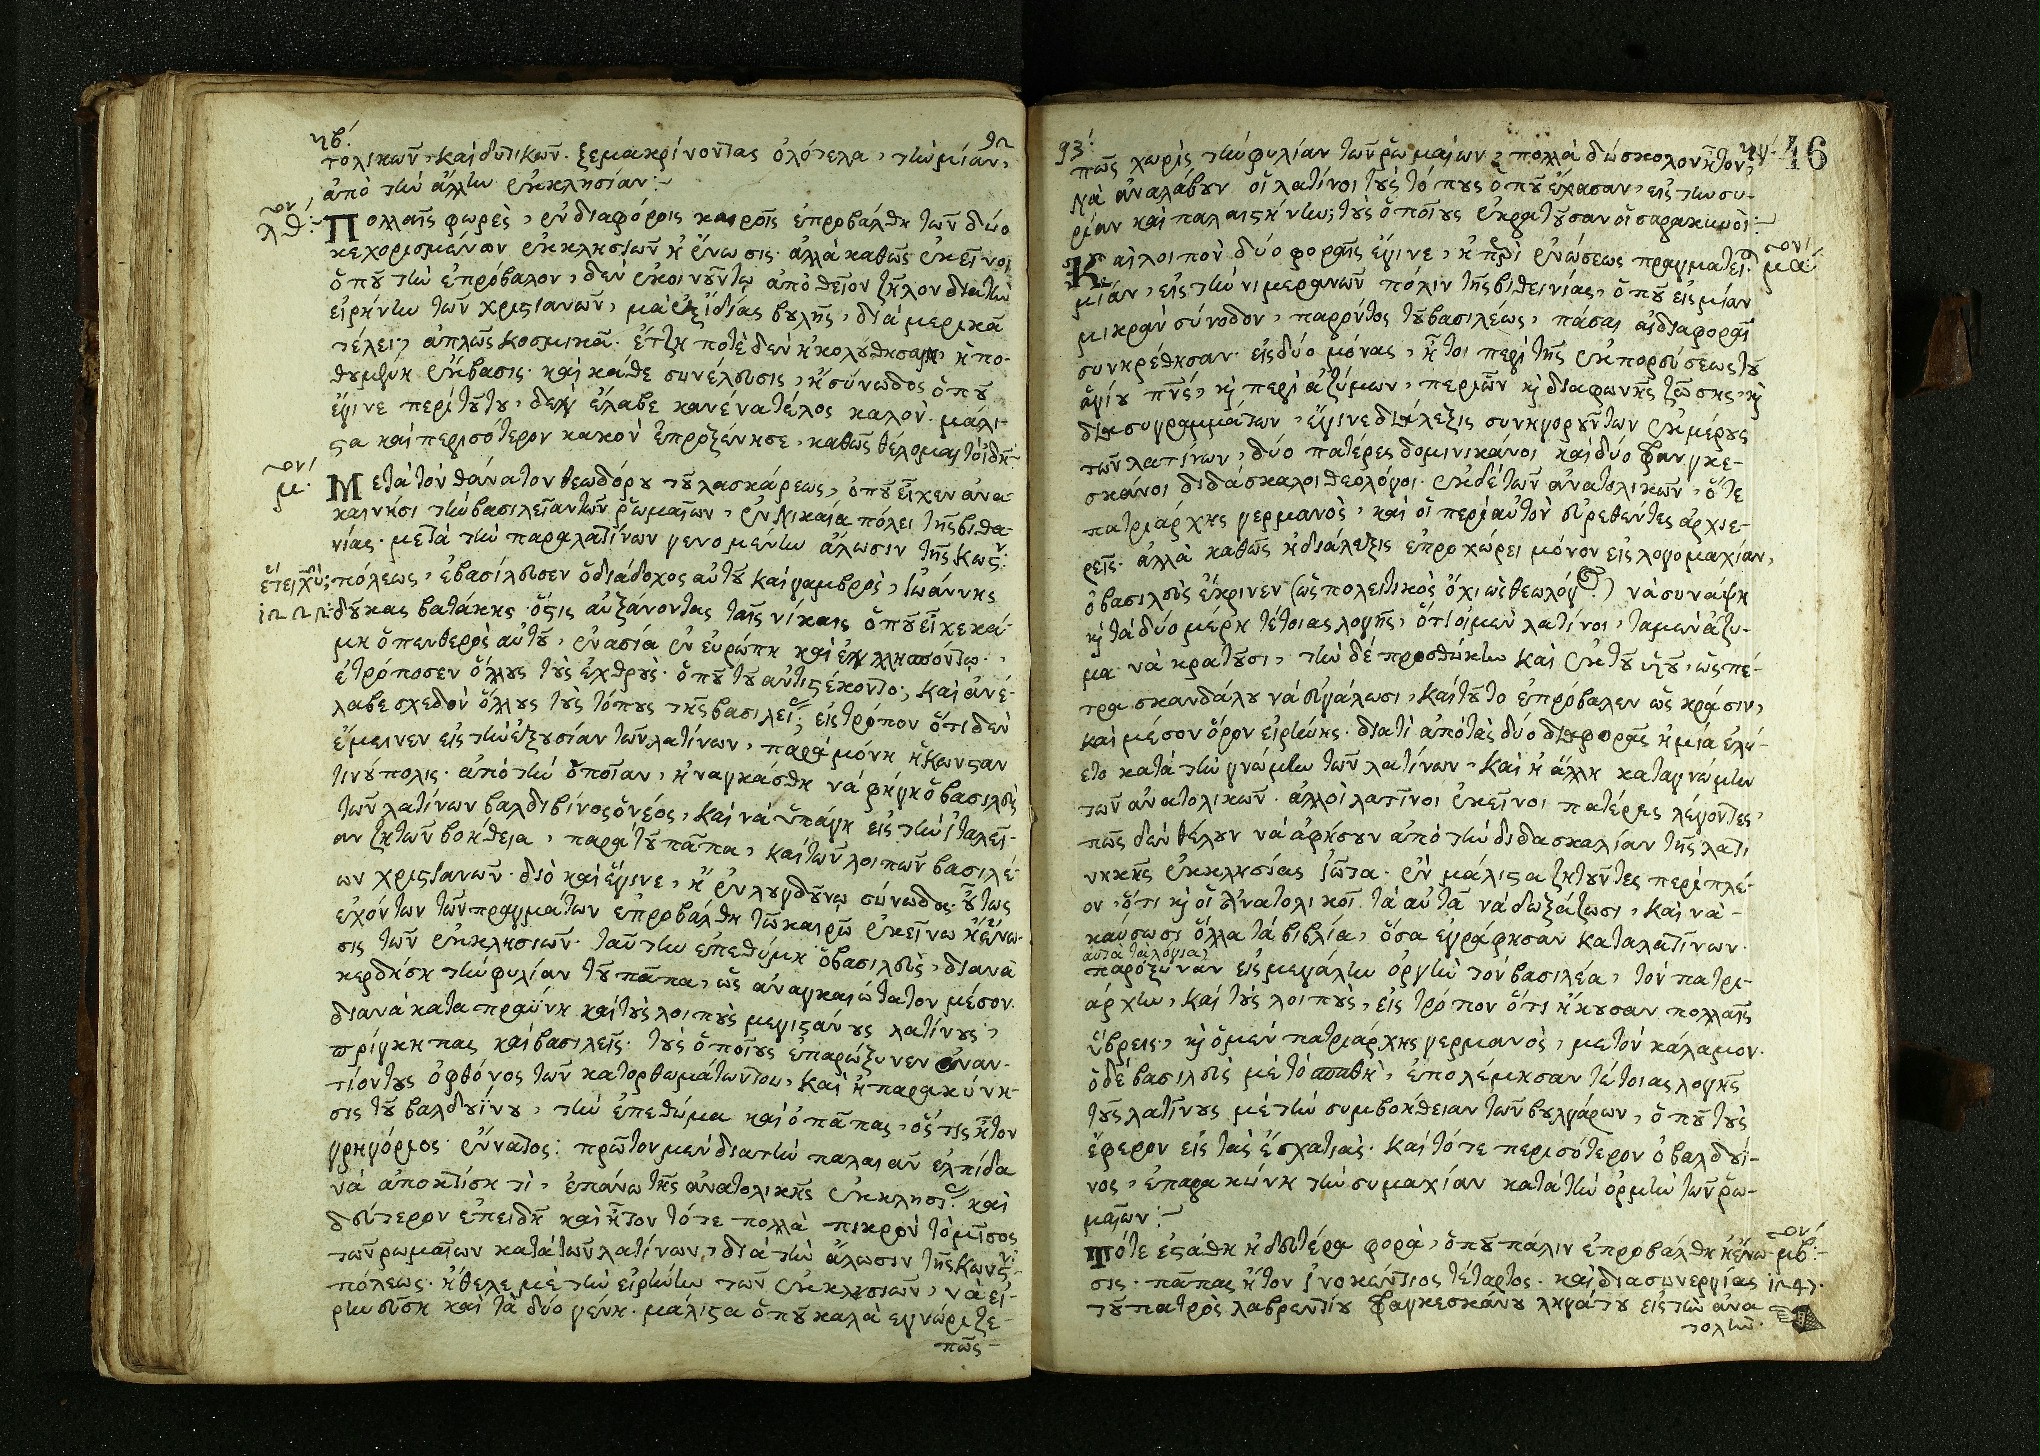 ϟβ΄. 92
τολικῶν, καὶ δυτικῶν. ξεμακρίνοντας ὁλότελα, τὴν μίαν,
ἀπὸ τὴν ἄλλην ἐκκλησίαν:~
λθ:~ Πολλαῖς φωρὲς, ἐν διαφόροις καιροῖς ἐπροβάλθη τῶν δύο
κεχορισμένων ἐκκλησιῶν ἡ ἕνωσις. ἀλλὰ καθὼς ἐκεῖνοι
ὁποῦ τὴν ἐπρόβαλον, δὲν ἐκοινοῦντω ἀπὸ θεῖον ζῆλον διὰ τὴν
εἰρήνην τῶν χριστιανῶν, μὰ ἐξ ἰδίας βουλῆς, διὰ μερικὰ
τέλει, ἁπλῶς κοσμικὰ. ἔτζη ποτὲ δὲν ἠκολύθησαν, ἡ πο-
θυμητὴ ἔκβασις. καὶ κάθε συνέλευσις, ἢ σύνωδος ὁποῦ
ἔγινε περὶ τούτου, δὲν ἔλαβε κανένα τέλος καλόν. μάλι-
στα καὶ περισότερον κακὸν ἐπροξένησε, καθὼς θέλομαι τὸ ἰδῆ:~
μ. Μετὰ τὸν θάνατον θεωδόρου τοῦ λασκάρεως, ὁποῦ εἶχεν ἀνα-
καινήσι τὴν βασιλείαν τῶν ῥωμαίων, ἐν Νικαία πόλει τῆς βιθυ-
νίας. μετὰ τὴν παρα λατίνων γενομένην ἅλωσιν τῆς Κων:
πόλεως, ἐβασίλευσεν ὁ διάδοχος αὐτοῦ καὶ γαμβρὸς, Ἰωάννης
1222: δούκας βατάκης. ὅστις αὐξάνοντας ταῖς νίκαις ὁποῦ εἶχε κά-
μη ὁ πενθερὸς αὐτοῦ, ἐν ασία ἐν εὐρώπη καὶ ἐν
ἐτρόποσεν ὅλους τοὺς ἐχθρούς. ὁποῦ τοῦ ἀντιστέκοντο, καὶ ἀνέ-
λαβε σχεδὸν ὅλους τοὺς τόπους τῆς βασιλεί, εἰς τρόπον ὅτι δὲν
ἔμεινεν εἰς τὴν ἐξουσίαν τῶν λατίνων, παρὰ μόνη ἡ Κωνσταν
τινούπολις. ἀπὸ τὴν ὁποῖαν, ἠναγκάσθη νὰ φήγη ὁ βασιλεὺς
τῶν λατίνων βαλδιβίνος ὁ νέος, καὶ νὰ ὑπάγη εἰς τὴν ἰταλεί-
αν ζητῶν βοήθεια, παρὰ τοῦ πάπα, καὶ τῶν λοιπῶν βασιλέ-
ων χριστιανῶν. διὸ καὶ ἔγινε, ἡ ἐν λουγδούνω σύνωδος. οὕτως
εἰχόντων τῶν πραγμάτων ἐπροβάλθη τῶ καιρῶ ἐκείνω ἡ ἕνω-
σις τῶν ἐκκλησιῶν. ταύτην ἐπεθύμη ὁ βασιλεὺς, διανὰ
κερδήση τὴν φιλίαν τοῦ πάπα, ὡς ἀναγκαιώτατον μέσον.
διανὰ καταπραΰνη καὶ τοὺς λοιποὺς μεγιστάνους λατίνους,
πρίγκηπας καὶ βασιλεῖς. τοὺς ὁποῖους ἐπαρώξυνεν ἐναν-
τίοντους ὁ φθόνος τῶν κατορθωμάτωντου, καὶ ἡ παρακύνη-
σις τοῦ βαλδουΐνου, τὴν ἐπεθύμα καὶ ὁ πάπας, ὅστις ἦτον
γρηγόριος ἔννατος: πρῶτον μὲν διὰ τὴν παλαιὰν ἐλπίδα
νὰ ἀποκτίση τὶ, ἐπάνω τῆς ἀνατολικῆς ἐκκλησί: καὶ
δεύτερον ἐπειδὴ καὶ ἦτον τότε πολλὰ πικρὸν τὸ μῖσος
τῶν ρωμαίων κατὰ τῶν λατίνων, διὰ τὴν ἅλωσιν τῆς Κωνσ:
πόλεως. ἤθελε μὲ τὴν εἰρήνην τῶν ἐκκλησιῶν, νὰ εἰ-
ρηνεύση καὶ τὰ δύο γένη. μάλιστα ὁποῦ καλὰ ἐγνώριζε-
πῶς-
93΄. ϟγ΄. 46
πῶς χωρὶς τὴν φιλίαν τῶν ῥωμαίων, πολλὰ δύσκολον ἦτον,
νὰ ἀναλάβουν οἱ λατίνοι τοὺς τόπους ὁποῦ ἔχασαν, εἰς τὴν συ-
ρίαν καὶ παλαιστήνην, τοὺς ὁποῖους ἐκρατοῦσαν οἱ σαρακινοὶ:~
μα΄ Καὶ λοιπὸν δύο φοραῖς ἔγινε, ἡ περὶ ἑνώσεως πραγματεί:
μιὰν, εἰς τὴν νιμεραίων πόλιν τῆς βιθεινίας, ὁποῦ εἰς μίαν
μικρὰν σύνοδον, παρόντος τοῦ βασιλέως, πάσαι αἱ διαφοραὶ
συνηρέθησαν. εἰς δύο μόνας, ἤτοι περὶ τῆς ἐκπορεύσεως τοῦ
ἁγίου πνς, κὶ περὶ ἀζύμων, κὶ διαφωνῆς ζώσης, κὶ
διὰ συγραμμάτων, ἔγινε διάλεξις συνηγορούντων ἐκ μέρους
τῶν λατίνων, δύο πατέρες δομινικάνοι καὶ δύο φραγκε-
σκάνοι διδάσκαλοι θεολόγοι. ἐκ δὲ τῶν ἀνατολικῶν, ὅτε
πατριάρχης γερμανὸς, καὶ οἱ περὶ αὐτὸν εὑρεθέντες ἀρχιε-
ρεῖς. ἀλλὰ καθὼς ἡ διάλεξις ἐπροχώρει μόνον εἰς λογομαχίαν,
ὁ βασιλεὺς ἔκρινεν (ὡς πολειτικὸς ὄχι ὡς θεωλόγος) νὰ συνάψη
κὶ τὰ δύο μέρη τέτοιας λογῆς, ὅτι οἱ μὲν λατίνοι, τὰ μὲν ἄζυ-
μα νὰ κρατοῦσι, τὴν δὲ προσθήκην καὶ ἐκ τοῦ υἱοῦ, ὡς πέ-
τρα σκανδάλου νὰ εὐγάλωσι, καὶ τοῦτο ἐπρόβαλεν ὡς κράσιν,
καὶ μέσον ὅρον εἰρήνης. διατὶ ἀπὸ τὰς δύο διαφορὰς ἡ μία ἐλύ-
ετο κατὰ τὴν γνώμην τῶν λατίνων. καὶ ἡ ἄλλη κατα γνώμην
τῶν ἀνατολικῶν. ἀλλ οἱ λατῖνοι ἐκεῖνοι πατέρες λέγοντες,
πῶς δὲν θέλουν νὰ ἀφήσουν ἀπὸ τὴν διδασκαλίαν τῆς λατι
νηκῆς ἐκκλησίας ἰῶτα. ἐν μάλιστα ζητοῦντες περὶ πλέ-
ον, ὅτι κὶ οἱ ἀνατολικοὶ τὰ αὐτὰ νὰ δωξάζωσι, καὶ νὰ-
καύσωσι ὅλλα τὰ βιβλία, ὅσα ἐγράφησαν κατα λατίνων.
αὐτὰ τὰ λόγια,
παρόξυναν εἰς μεγάλην ὀργὴν τὸν βασιλέα, τὸν πατρι-
άρχην, καὶ τοὺς λοιποὺς, εἰς τρόπον ὅτι ἤκουσαν πολλαῖς
ὕβρεις, κὶ ὁ μὲν πατριάρχης γερμανὸς, με τὸν κάλαμον.
ὁ δὲ βασιλεὺς μὲ τὸ σπαθὴ, ἐπολέμησαν τέτοιας λογῆς
τοὺς λατίνους μὲ τὴν συμβοήθειαν τῶν βουλγάρων, ὁποῦ τοὺς
ἔφερον εἰς τὰς ἐσχατιὰς. καὶ τότε περισότερον ὁ βαλδουί-
νος, ἐπαρακώνη τὴν συμαχίαν κατὰ τὴν ὁρμὴν τῶν ῥω-
μαίων:~
μβ:~ Τότε ἐστάθη ἡ δευτέρα φορὰ, ὁποῦ πάλιν ἐπροβάλθη ἡ ἕνω-
σις. πάπας ἦτον ἰνοκέντιος τέταρτος. καὶ δια συνεργίας 1247.
τοῦ πατρὸς λαβρεντίου φραγκεσκάνου ληγάτου εἰς τὴν ἀνα
τολὴν.